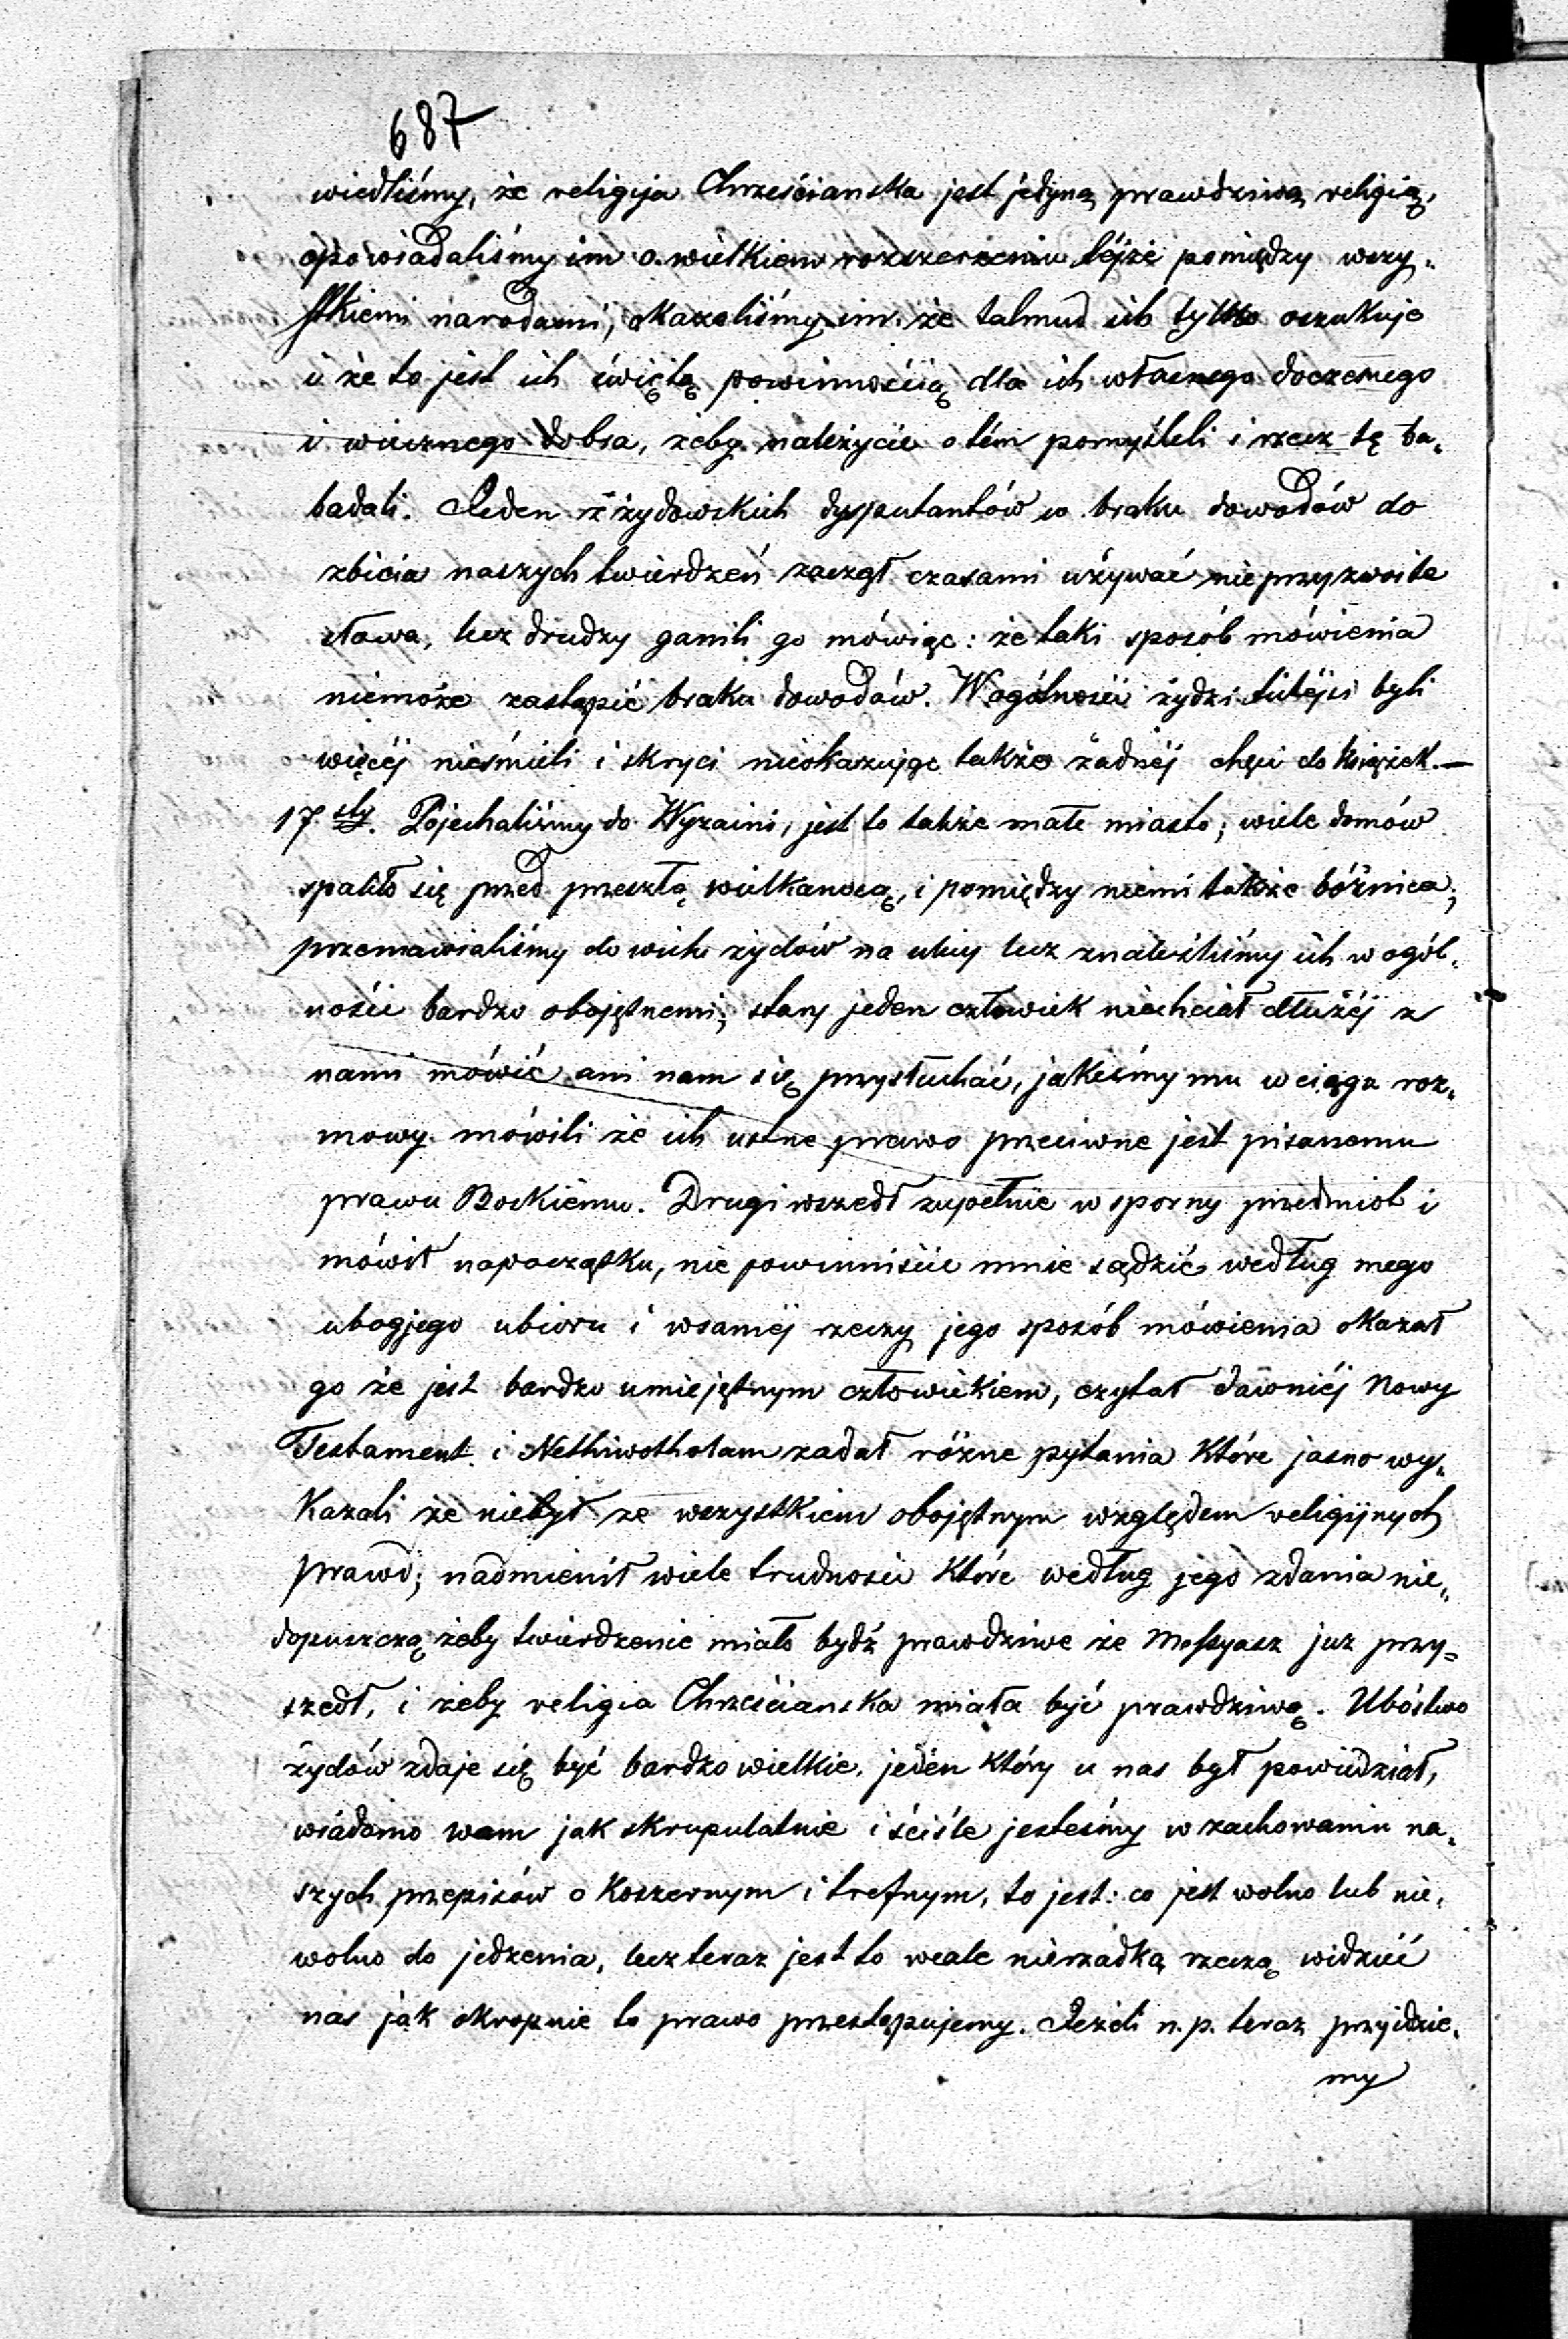 687
wiedliśmy, że religija Chrześcianska jest jedyną prawdziwą religią,
opowiadaliśmy im o wielkiem rozszerzeniu téjże pomiędzy wszy„
stkiemi narodami, okazaliśmy im że talmud ich tylko oszukuje
i że to jest ich świętą powinnością dla ich własnego doczesnego
i wiecznego dobra, żeby należycie o tém pomyśleli i rzecz tę ba„
badali. Jeden z żydowskich dysputantów w braku dowodów do
zbicia naszych twierdzeń zaczął czasami używać nieprzyzwoite
słowa, lecz drudzy ganili go mówiąc: że taki sposób mówienia
niemoże zastąpić braku dowodów. W ogólności żydzi tutéjsi byli
więcéj nieśmieli i skryci nieokazując także żadnéj chęci do książek.—
17 sty. Pojechaliśmy do Wyzaini, jest to także małe miasto; wiele domów
spaliło się przed przeszłą wielkanocą, i pomiędzy niemi także bóżnica;
przemawialiśmy do wielu żydów na ulicy lecz znaleźliśmy ich w ogól„
ności bardzo obojętnemi; stary jeden człowiek niechciał dłużéj z
nami mówić ani nam się przysłuchać, jakeśmy mu w ciągu roz„
mowy mówili że ich ustne prawo przeciwne jest pisanemu
prawu Boskiemu. Drugi wszedł zupełnie w sporny przedmiot i
mówił napoczątku, nie powinniście mnie sądzić według mego
ubogjego ubioru i wsaméj rzeczy jego sposób mówienia okazał
go że jest bardzo umiejętnym człowiekiem, czytał dawniéj Nowy
Testament i Nethiwotholam zadał różne pytania które jasno wy„
kazali że niebył ze wszystkiem obojętnym względem religijnych
prawd; nadmienił wiele trudności które według jego zdania nie„
dopuszczą żeby twierdzenie miało bydź prawdziwe że Messyasz juz przy„
szedł, i żeby religia Chrześcianska miała być prawdziwą. Ubóstwo
żydów zdaje się być bardzo wielkie, jeden który u nas był powiedział,
wiadomo wam jak skrupulatnie i ściśle jesteśmy w zachowaniu na„
szych przepisów o koszernym i trefnym, to jest: co jest wolno lub nie„
wolno do jedzenia, lecz teraz jest to wcale nierzadką rzeczą widzieć
nas jak okropnie to prawo przestępujemy. Jeżeli n.p. teraz przyjdzie„
my